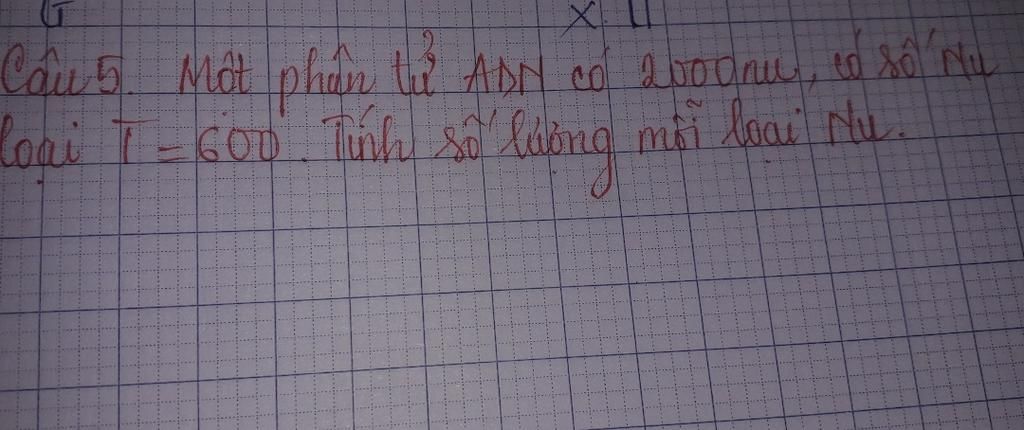 G X. U
Câu 5. Một phân tử ADN có 2000nu, có số Nu
loại T = 600. Tính số lượng mỗi loại Nu.